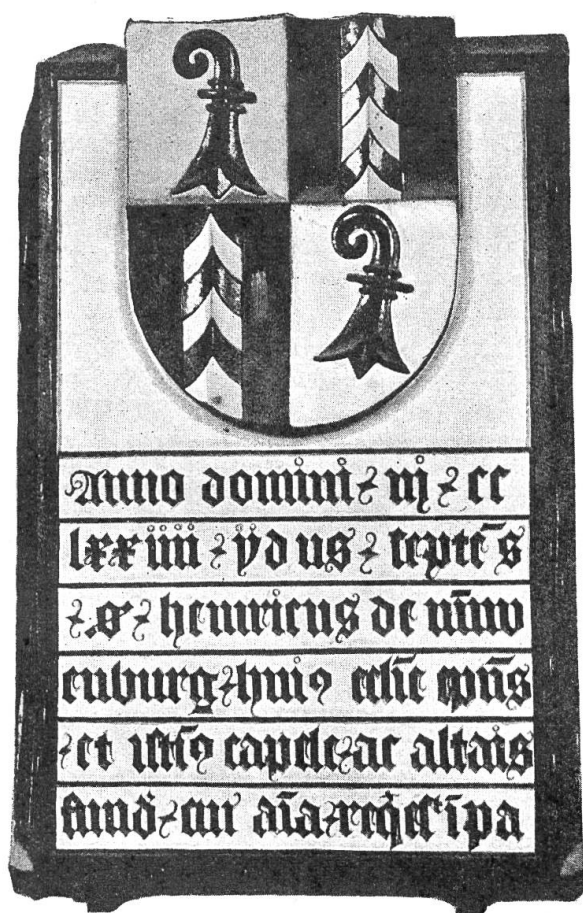 Anno domini · m · cc
lxxiiii · ÿdus · septē s
· ō · heinricus de nūw
enburg · huiꝯ eclīe ep̄us
· et istiꝯ capelle · ac altaīs
fund̄ · cuī aīa · req̄esc̄ ī pa